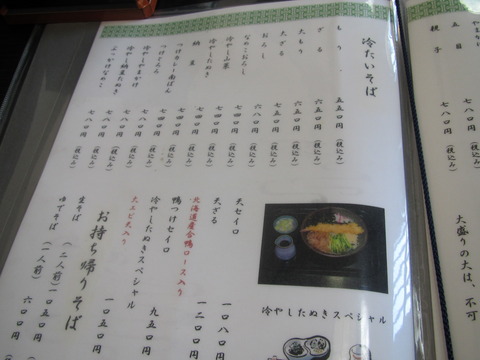 五目
親子
七八〇円
七八〇円
(税込み)
(税込み)
大盛りの大は、不可
冷たいそば
もり 五五〇円 (税込み)
ざる 六五〇円 (税込み)
大もり 六五〇円 (税込み)
大ざる 七五〇円 (税込み)
おろし 六八〇円 (税込み)
なめこおろし 七四〇円 (税込み)
冷やし山菜 七四〇円 (税込み)
冷やしたぬき 七四〇円 (税込み)
納豆 七四〇円 (税込み)
つけカレー南ばん 七四〇円 (税込み)
つけとろろ 七四〇円 (税込み)
冷やしやまかけ 七八〇円 (税込み)
冷やし納豆たぬき 七八〇円 (税込み)
ぶっかけなめこ 七八〇円 (税込み)
冷やしたぬきスペシャル
天セイロ 一〇八〇円
天ざる 一二〇〇円
北海道産合鴨ロース入り
鴨つけセイロ 九五〇円
冷やしたぬきスペシャル 一〇五〇円
大エビ天入り
お持ち帰りそば
生そば (二人前) 一〇五〇円
ゆでそば (一人前) 六〇〇円